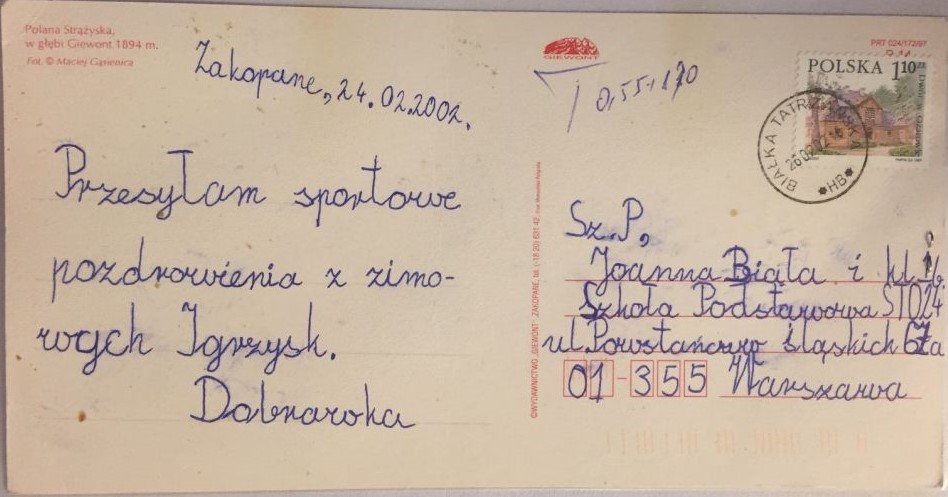 Polana Strążyska,
w głębi Giewont 1894 m.
Fot. © Maciej Gąsienica
Zakopane, 24.02.2002.
Przesyłam sportowe
pozdrowienia z zimo-
wych Igrzysk.
GIEWONT
PRT 024/172/97
T 0,55-170
POLSKA 1.10 zł
BIAŁKA TATRZAŃSKA
*HB*
©WYDAWNICTWO „GIEWONT" ZAKOPANE, tel. (-18 20) 631 42
Sz.P,
Joanna Biała i kl.
Szkoła Podstawowa STO24
ul.Powstańców śląskich 67a
01-355 Warszawa